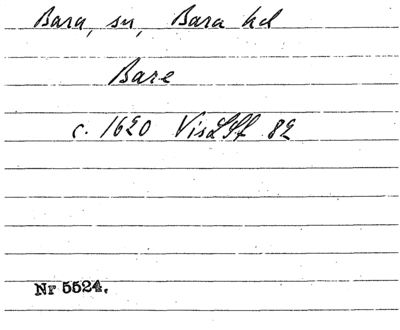 Bara, sn, Bara hd
Bare
c. 1620 VisLSf 82
Nr 5524.